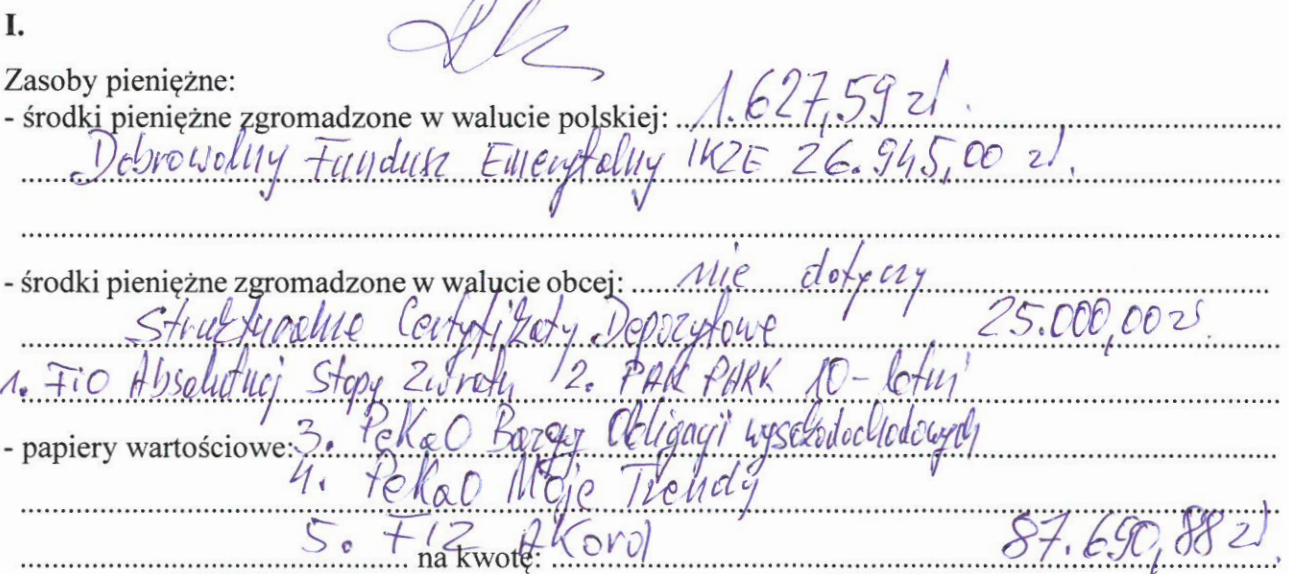 I.
Zasoby pieniężne:
- środki pieniężne zgromadzone w walucie polskiej: 1.627,59 zł.
Dobrowolny Fundusz Emerytalny IKZE 26.945,00 zł.
- środki pieniężne zgromadzone w walucie obcej: nie dotyczy
Strukturalne Certyfikaty Depozytowe 25.000,00 zł.
1. FiO Absolutnej Stopy Zwrotu 2. PARK 10-letni
- papiery wartościowe: 3. PeKaO Obligacji wysokodochodowych
4. PeKaO Moje Trendy
5. FIZ AKord na kwotę: 87.690,88 zł.